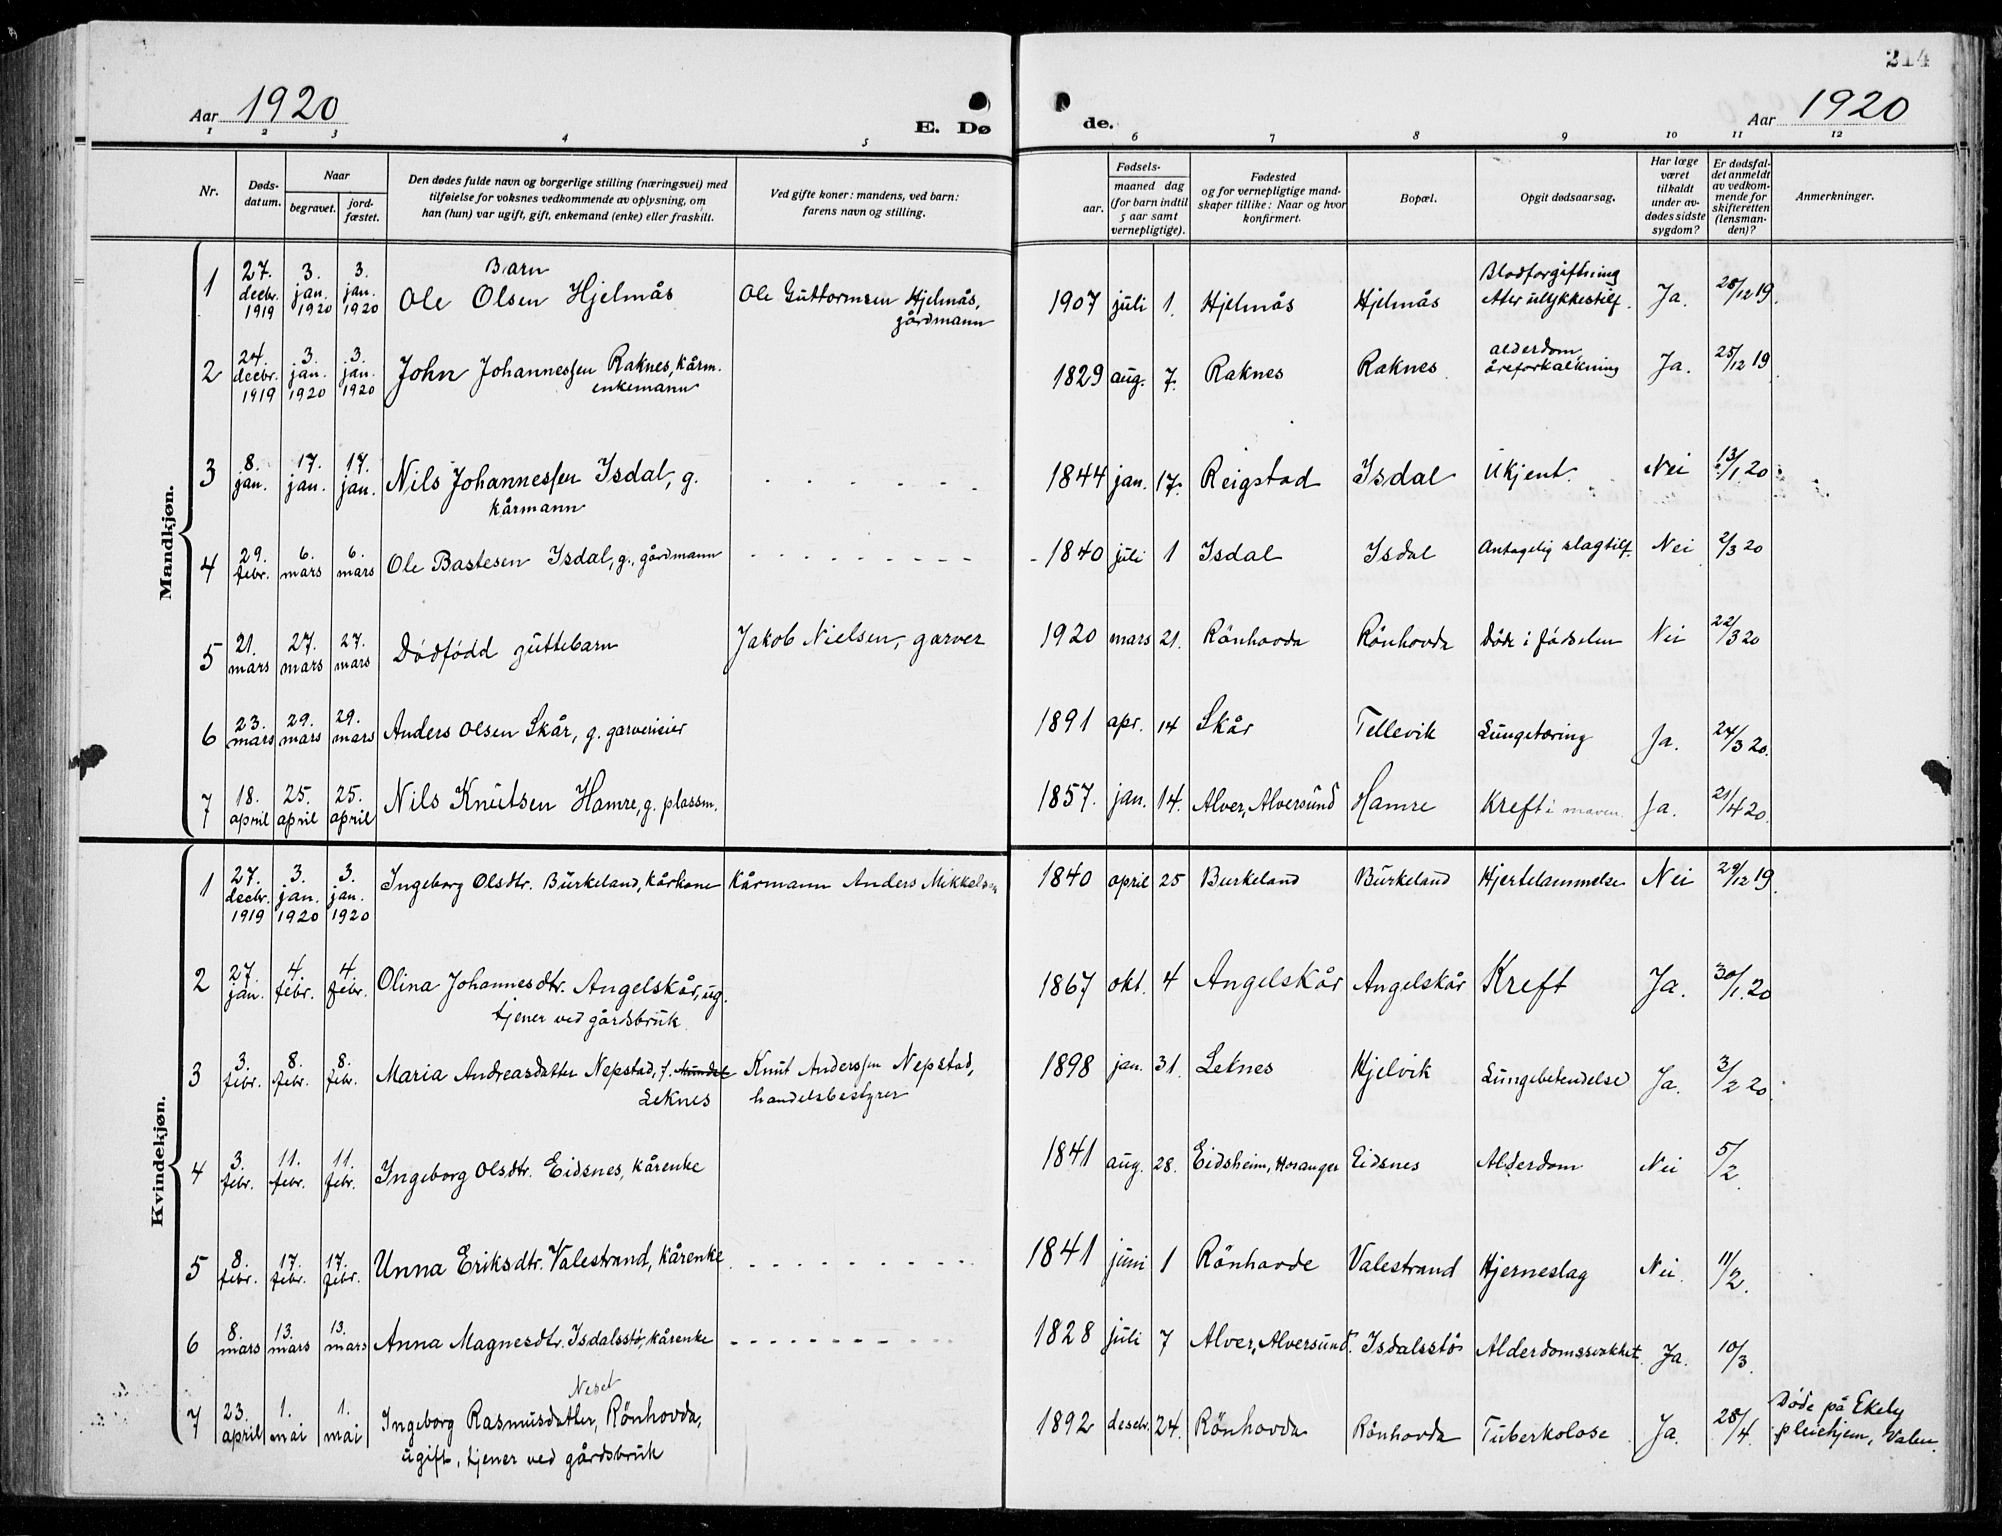 214
Aar 1920
E. Dø
de.
Aar 1920
1 2 3 4 5 6 7 8 9 10 11 12
Nr.
Døds-
datum.
Naar
begravet.
jord-
fæstet.
Den dødes fulde navn og borgerlige stilling (næringsvei) med
tilføielse for voksnes vedkommende av oplysning, om
han (hun) var ugift, gift, enkemand (enke) eller fraskilt.
Ved gifte koner: mandens, ved barn:
farens navn og stilling.
Fødsels-
aar.
maaned dag
(for barn indtil
5 aar samt
vernepligtige).
Fødested
og for vernepligtige mand-
skaper tillike: Naar og hvor
konfirmert.
Bopæl.
Opgit dødsaarsag.
Har læge
været
tilkaldt
under av-
dødes sidste
sygdom?
Er dødsfal-
det anmeldt
av vedkom-
mende for
skifteretten
(lensman-
den)?
Anmerkninger.
Mandkjøn.
1 27. decbr. 1919 3. jan. 1920 3. jan. 1920 Ole Olsen Hjelmås Barn Ole Guttormsen Hjelmås, gårdmann 1907 juli 1. Hjelmås Hjelmås Blodforgiftning etter ulykkestilf. Ja. 28/12 19.
2 24. decbr. 1919 3. jan. 1920 3. jan. 1920 John Johannessen Raknes, kårm. enkemann 1829 aug. 7. Raknes Raknes alderdom åreforkalkning Ja. 25/12 19
3 8. jan. 17. jan. 17. jan. Nils Johannessen Isdal, g. kårmann 1844 jan. 17. Reigstad Isdal Ukjent. Nei 13/1 20
4 29. febr. 6. mars 6. mars Ole Bastesen Isdal, g., gårdmann 1840 juli 1 Isdal Isdal Antagelig slagtilf. Nei 2/3 20
5 21. mars 27. mars 27. mars Dödfödd guttebarn Jakob Nielsen, garver 1920 mars 21. Rönhovda Rönhovda Döde i födselen Nei 22/3 20
6 23. mars 29. mars 29. mars Anders Olsen Skår, g. garverieier 1891 apr. 14 Skår Tellevik Lungetæring Ja. 24/3 20.
7 18. april 25. april 25. april Nils Knutsen Hamre, g. plassm. 1857. jan. 14. Alver, Alversund Hamre Kreft i maven. Ja. 21/4 20.
Kvindekjøn.
1 27. decbr. 1919 3. jan. 1920 3. jan. 1920 Ingeborg Olsdtr. Burkeland, kårkone Kårmann Anders Mikkelsen 1840 april 25 Burkeland Burkeland Hjertelammelse Nei 29/12 19.
2 27. jan. 4. febr. 4. febr. Olina Johannesdtr. Angelskår, ug. tjener ved gårdsbruk. 1867 okt. 4 Angelskår Angelskår Kreft Ja. 30/1. 20
3 3. febr. 8. febr. 8. febr. Maria Andreasdatter Nepstad, f. Leknes Knut Anderssen Nepstad, handelsbestyrer 1898 jan. 31. Leknes Hjelvik Lungebetendelse Ja. 3/2 20.
4 3. febr. 11. febr. 11. febr. Ingeborg Olsdtr. Eidsnes, kårenke 1841 aug. 28. Eidsheim, Hosanger Eidsnes Alderdom Nei 5/2.
5 8. febr. 17. febr. 17. febr. Unna Eriksdtr. Valestrand, kårenke 1841 juni 1 Rönhovde Valestrand Hjerneslag Nei. 11/2.
6 8. mars 13. mars 13. mars Anna Magnesdtr. Isdalsstö, kårenke 1828 juli 7 Alver, Alversund. Isdalsstö Alderdomssvakhet. Ja. 10/3.
7 23. april 1. mai 1. mai Ingeborg Rasmusdatter, Neset Rönhovda, ugift, tjener ved gårdsbruk 1892 desebr. 24. Rönhovda Rönhovda Tuberkolose Ja. 28/4. Döde på Ekely pleiehjem, Valen.